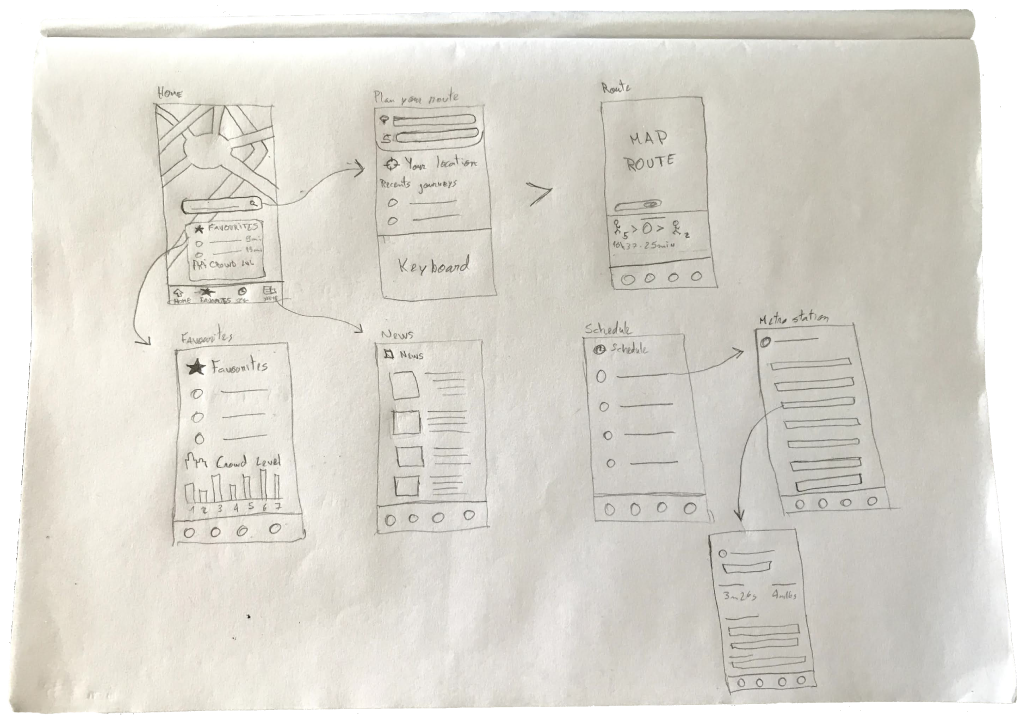 Home
FAVOURITES
HOME FAVOURITES
Plan your route
Your location
Recents journeys
Keyboard
Route
MAP
ROUTE
5 > > 2
Favourites
Favourites
Crowd Level
1 2 3 4 5 6 7
News
News
Schedule
Schedule
Metro station
3m26s 4m16s